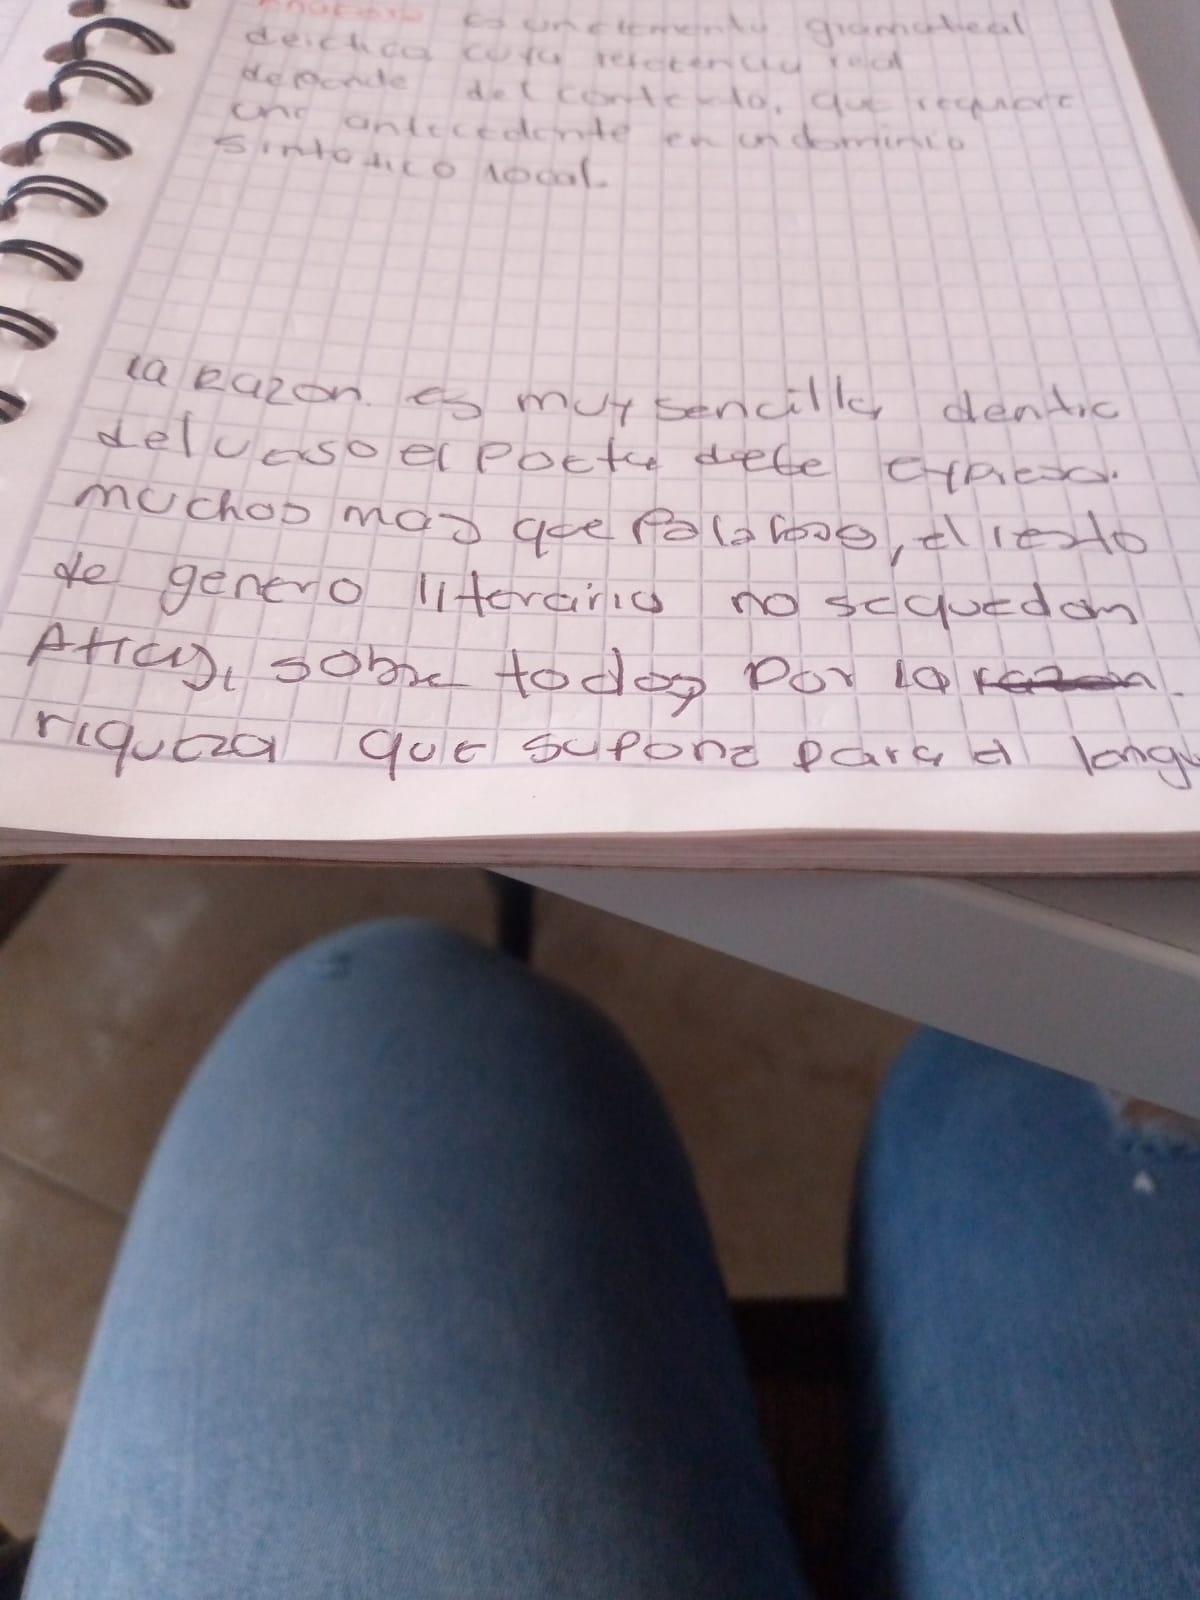 es un elemento gramatical
deictica cuya referencia real
depende del contexto, que requiere
uno antecedente en un dominio
sintotico local.
la Razon es muy sencilla dentro
del verso el Poeta debe expresar
muchos mas que Palabras, el resto
de genero literario no se quedan
Atras, sobre todos por la
riqueza que supone para el lengu